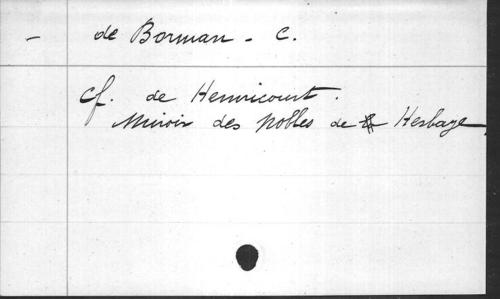 - de Borman - C.
cf. de Hemricourt.
Miroir des Nobles de Hesbaye